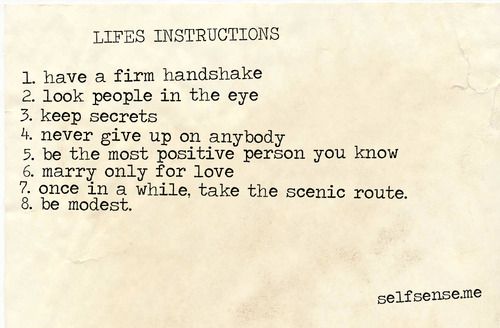 LIFES INSTRUCTIONS
1. have a firm handshake
2. look people in the eye
3. keep secrets
4. never give up on anybody
5. be the most positive person you know
6. marry only for love
7. once in a while, take the scenic route.
8. be modest.
selfsense.me